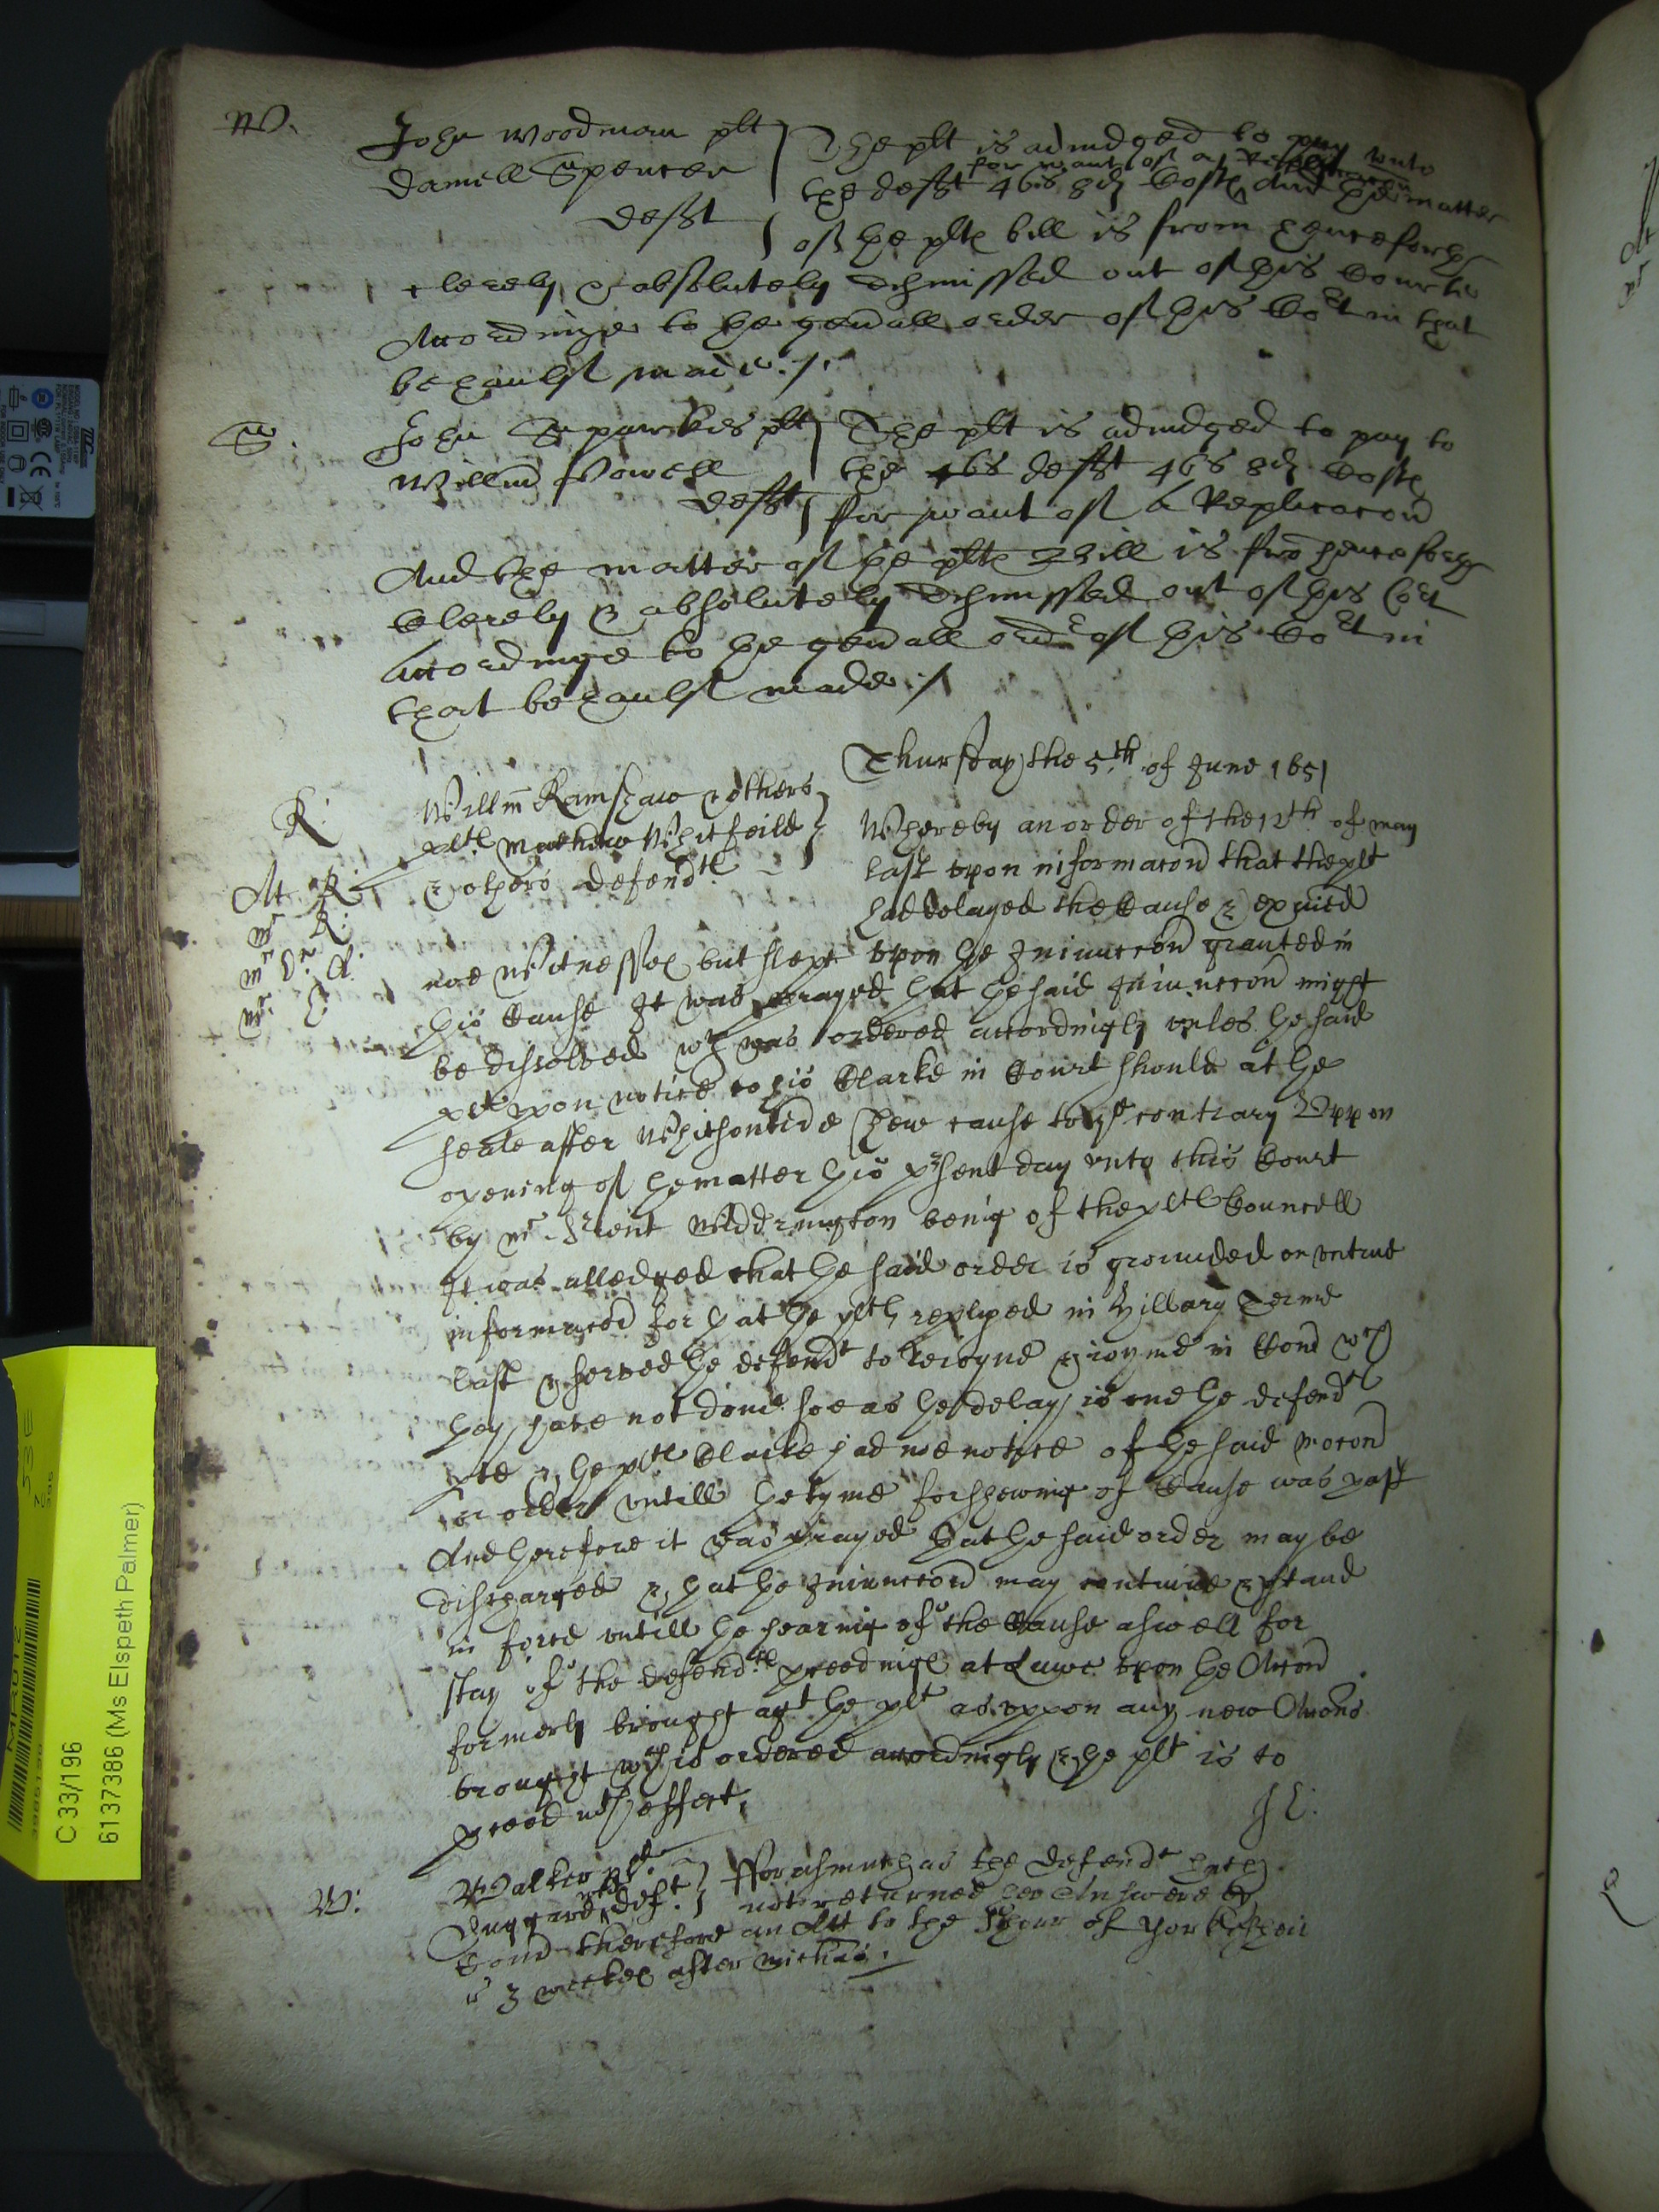 W.
John Woodman plt
Daniell Spencer
defft
The plt is adiudged to pay unto
for want of a Replicacon
the defft 46s 8d Costs And the matter
of the plts bill is from henceforth
clerely & absolutely dismissed out of this Courte
Accordinge to the genall order of this Cort in that
behaulf made ./.
S.
John Sparkes plt
Willm Powell
defft
The plt is adiudged to pay to
the 46s defft 46s 8d Costs
for want of a Replicacon
And the matter of the plts Bill is fro henceforth
Clerely & absolutely dismissed out of this Cort
Accordinge to the genall ordr of this Cort in
that behaulf made ./
Thursday the 5th of June 1651
R:
Willm Ramshaw & others
plts Mathew Whitfeild
& others defendts
At R:
mr R:
mr
mr
Whereby an order of the 12th of may
last upon informacon that the plt
had delayed the Cause & exaied
noe Witnesses but slept upon the Iniunccon granted in
this Cause It was prayed that the said Iniunccon might
be dissolved wch was ordered accordingly unles the said
plt upon notice to his Clarke in Court should at the
seale after Whitsontide shew cause to ye contrary Uppon
opening of the matter this prsent day unto this Court
by mr Srient Widdrington being of the plts Councell
It was alledged that the said order is grounded on untrue
informacon for that the plts replyed in Hillary Terme
last & served the defendt to Reioyne & ioyne in Com wch
they have not done soe as the delay is one the defendts
pte & the plts Clarke had noe notice of the said mocon
or order untill the tyme for shewing of Cause was past
And therefore it was prayed that the said order may be
discharged & that the Iniunccon may continue & stand
in force untill the hearing of the Cause aswell for
stay of the defendts proceedings at Lawe upon the Accon
formerly brought agt the plt as uppon any new Accons
brought wch is ordered accordingly & the plt is to
proceed wth effect.
J E:
W:
Walker plt
defts
fforasmuch as the defendt hath
not returned her Answere by
Comd therefore an Att to the Sher of yorke
is 3 weekes after Michas.
C 33/196
6137386 (Ms Elspeth Palmer)